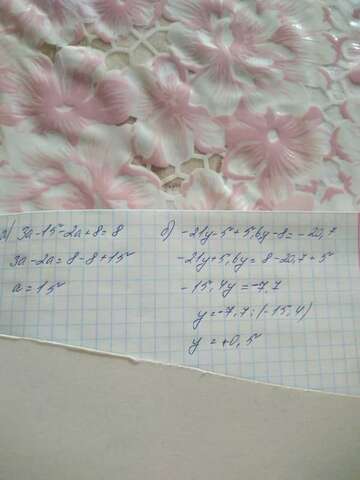 а) 3a-15-2a+8=8
3a-2a=8-8+15
a=15
б) -21y-5+5,6y-8=-20,7
-21y+5,6y=8-20,7+5
-15,4y=-7,7
y=-7,7:(-15,4)
y=+0,5